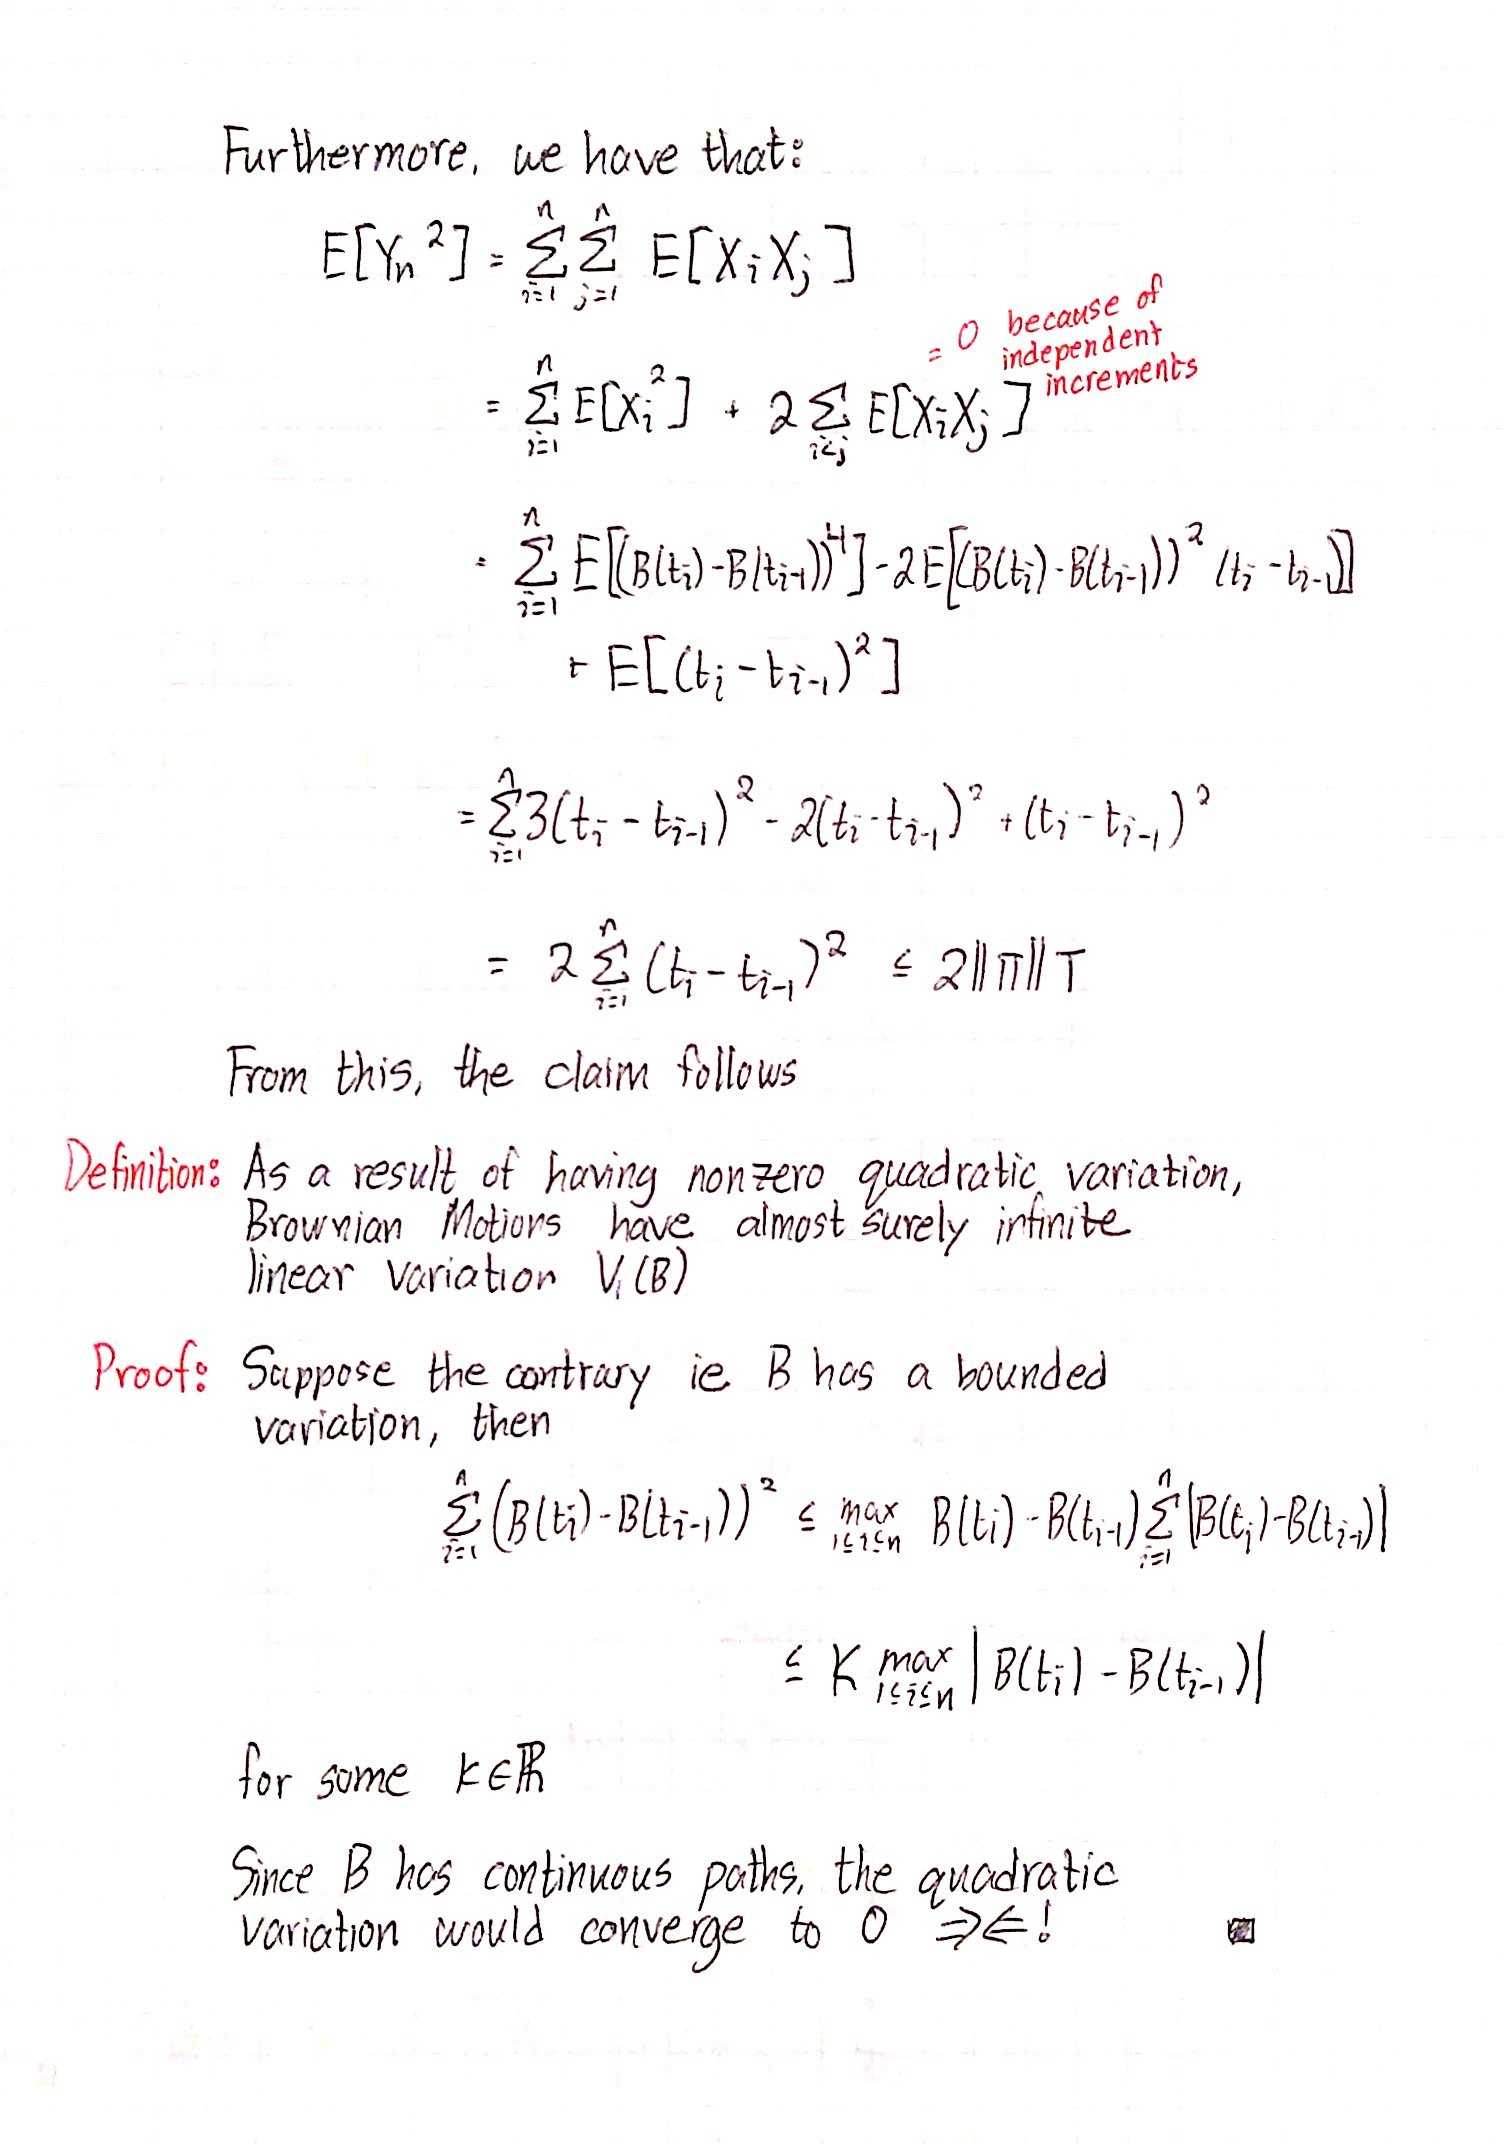 Furthermore, we have that:
E[Yₙ²] = ∑ⁿᵢ₌₁ ∑ⁿⱼ₌₁ E[XᵢXⱼ]
= 0 because of
independent
increments
= ∑ⁿᵢ₌₁ E[Xᵢ²] + 2 ∑_{i<j} E[XᵢXⱼ]
= ∑ⁿᵢ₌₁ E[(B(tᵢ)-B(tᵢ₋₁))⁴] - 2E[(B(tᵢ)-B(tᵢ₋₁))² (tᵢ-tᵢ₋₁)]
+ E[(tᵢ-tᵢ₋₁)²]
= ∑ⁿᵢ₌₁ 3(tᵢ-tᵢ₋₁)² - 2(tᵢ-tᵢ₋₁)² + (tᵢ-tᵢ₋₁)²
= 2 ∑ⁿᵢ₌₁ (tᵢ-tᵢ₋₁)² ≤ 2||π||T
From this, the claim follows
Definition: As a result of having nonzero quadratic variation,
Brownian Motions have almost surely infinite
linear variation V₁(B)
Proof: Suppose the contrary ie B has a bounded
variation, then
∑ⁿᵢ₌₁ (B(tᵢ)-B(tᵢ₋₁))² ≤ max_{1≤i≤n} B(tᵢ)-B(tᵢ₋₁) ∑ⁿᵢ₌₁ |B(tᵢ)-B(tᵢ₋₁)|
≤ K max_{1≤i≤n} |B(tᵢ)-B(tᵢ₋₁)|
for some K∈ℝ
Since B has continuous paths, the quadratic
variation would converge to 0 ⇒⇐!